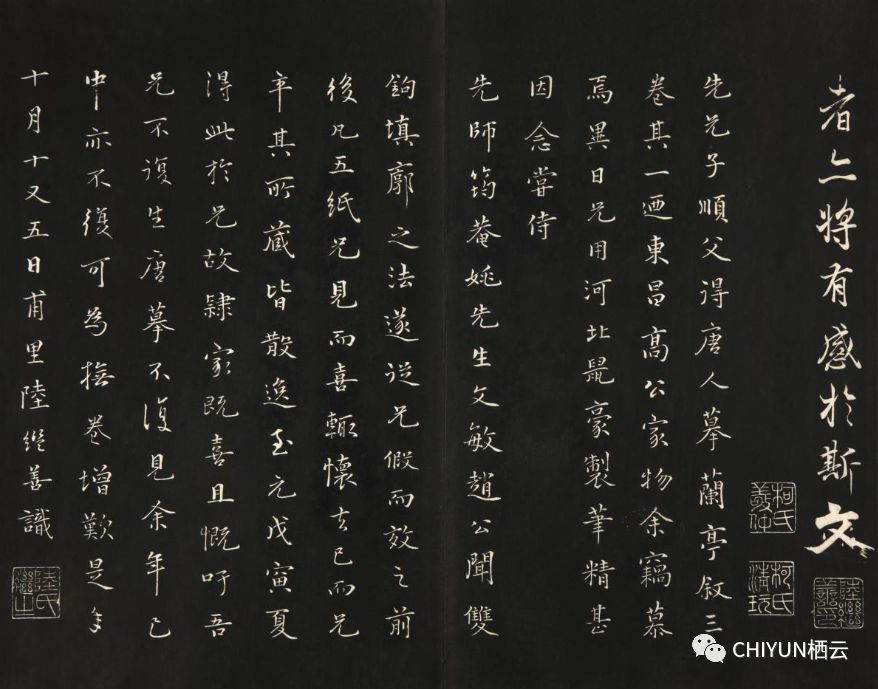 者亦將有感於斯文
先兄子順父得唐人摹蘭亭叙三
卷其一迺東昌高公家物余竊慕
焉異日兄用河北鼠豪製筆精甚
因念嘗侍
先師筠菴姚先生文敏趙公聞雙
鉤填廓之法遂從兄假而效之前
後凡五紙兄見而喜輒懷去已而兄
卒其所藏皆散逸至元戊寅夏
得此於兄故隸家既喜且慨吁吾
兄不復生唐摹不復見余年已
中亦不復可為撫卷增歎是年
十月十又五日甫里陸繼善識
柯氏敬仲
柯氏清玩
陸繼善印
陸氏繼之
CHIYUN栖云